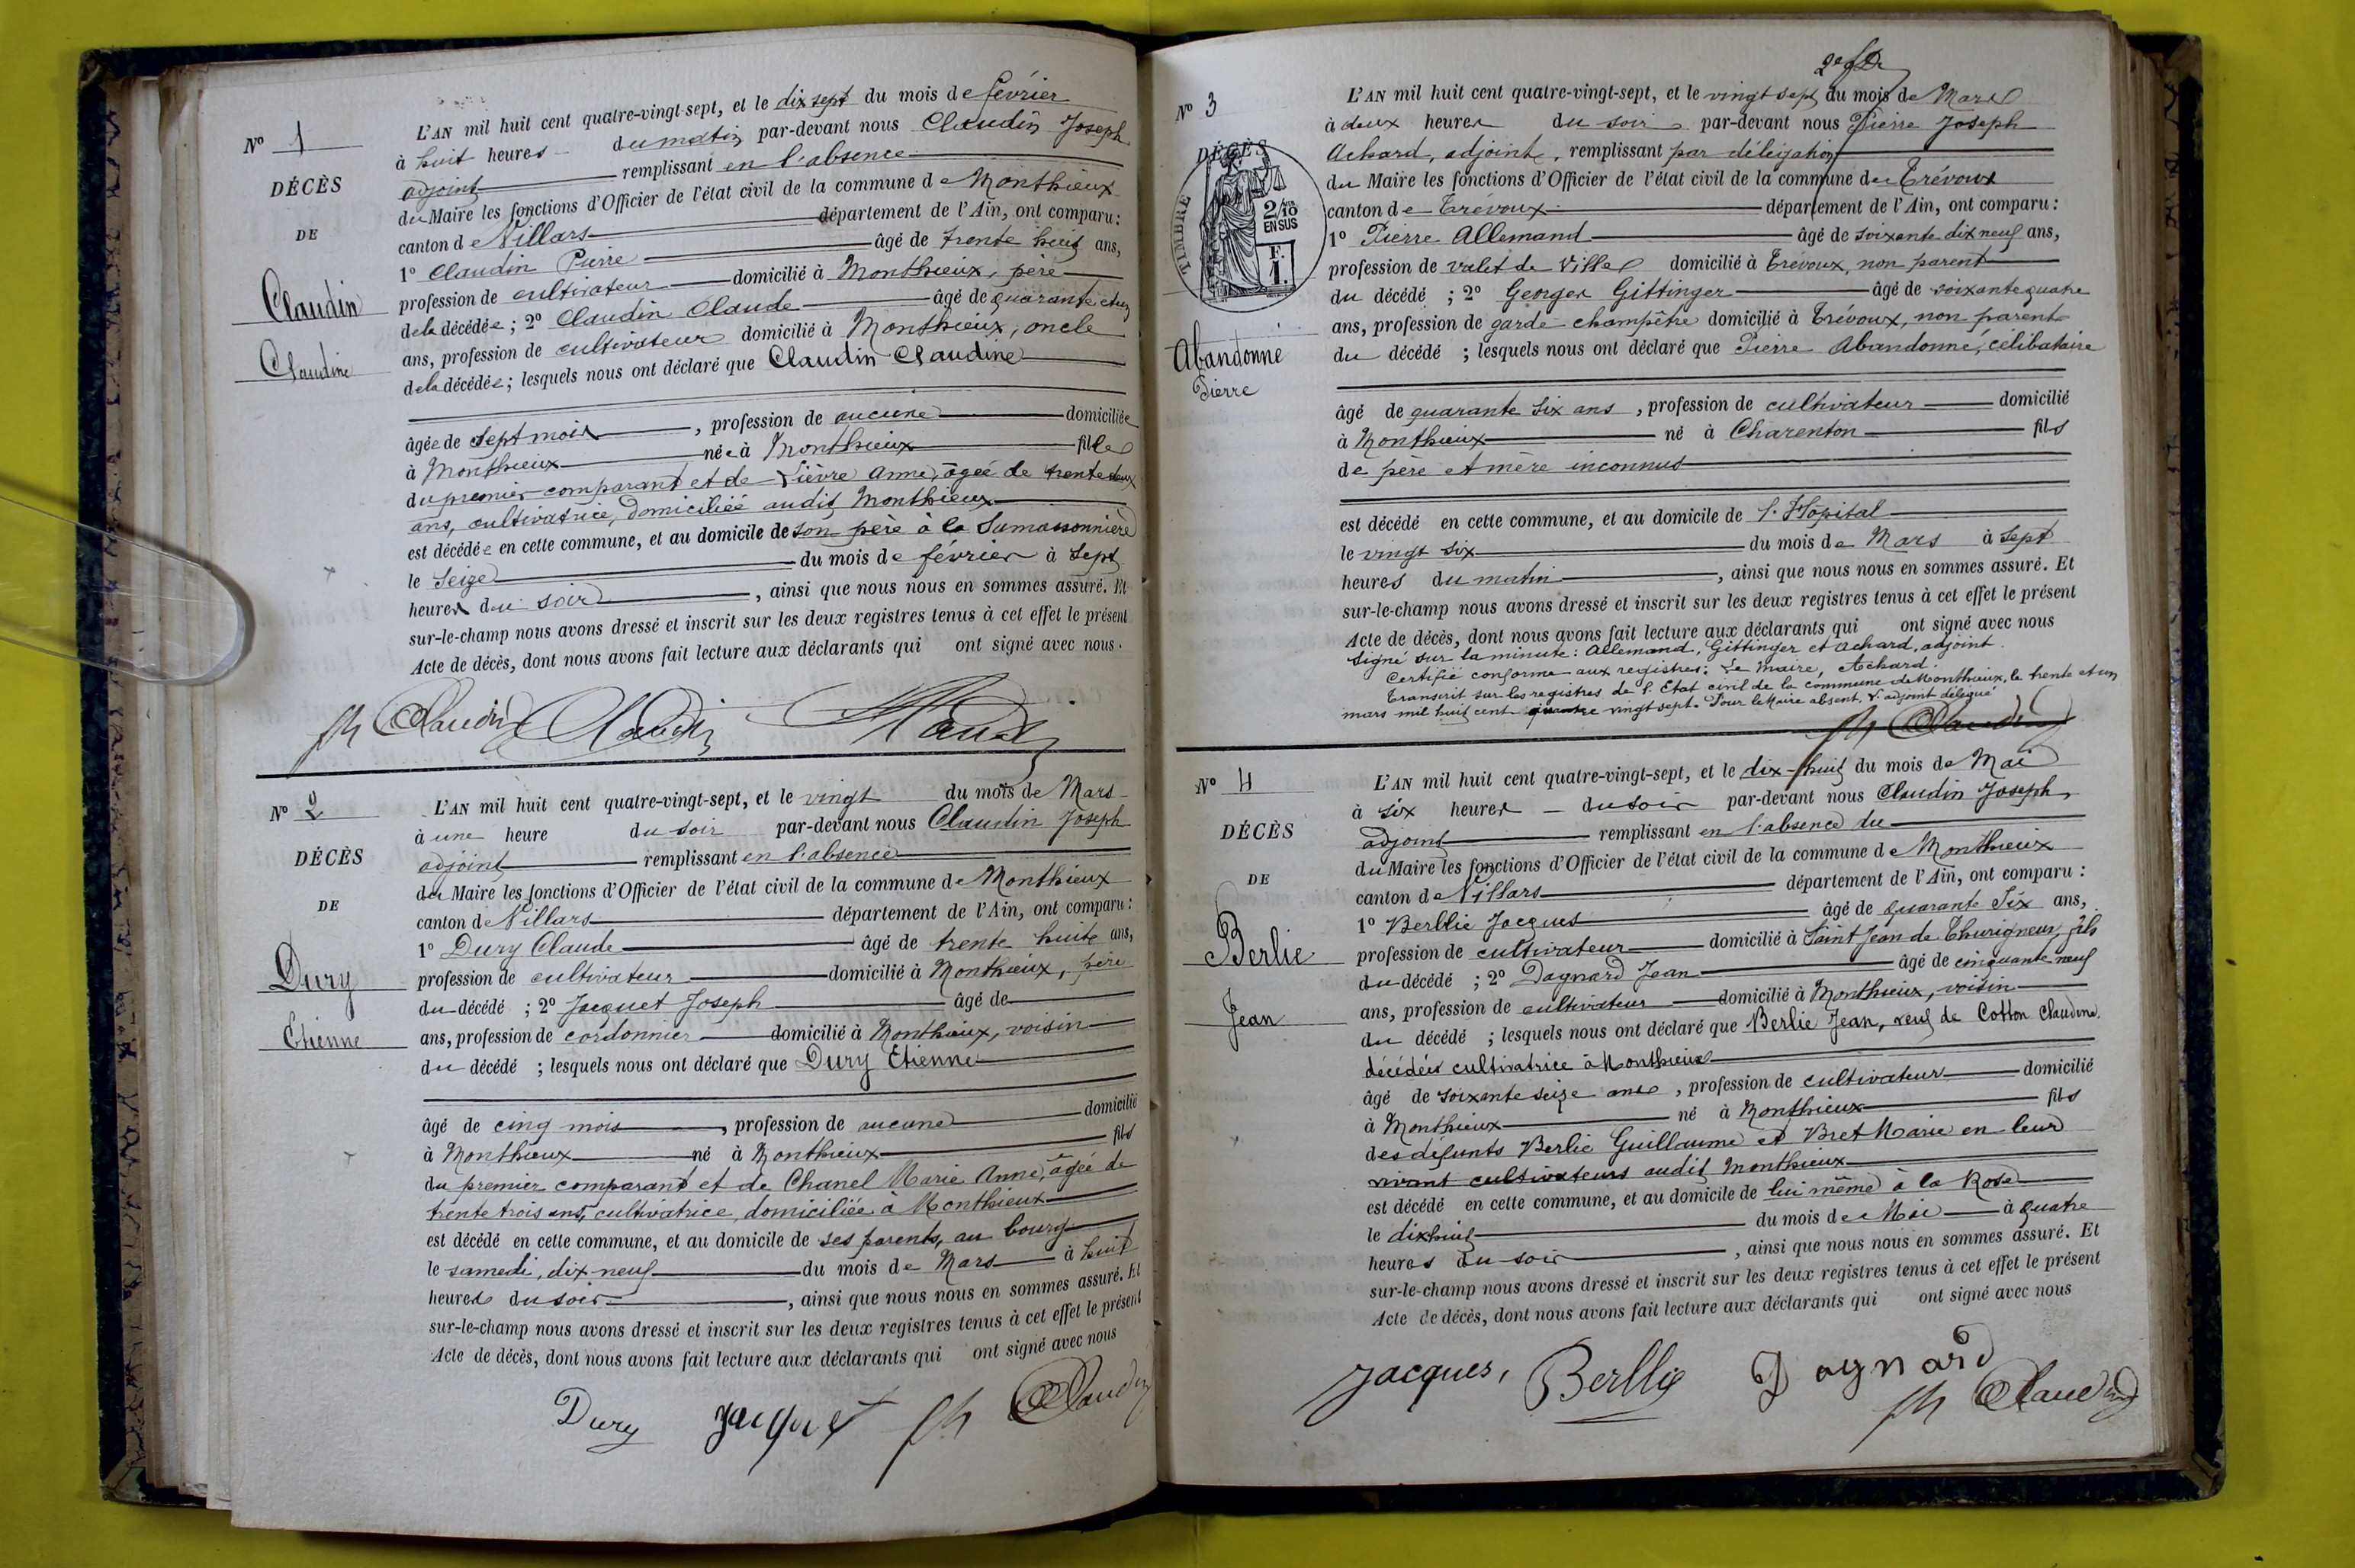 N° 1
DÉCÈS
DE
Claudin
Claudine
L'AN mil huit cent quatre-vingt-sept, et le dix sept du mois de février
à huit heures du matin par-devant nous Claudin Joseph
adjoint remplissant en l'absence
du Maire les fonctions d'Officier de l'état civil de la commune de Monthieux
canton de Villars département de l'Ain, ont comparu :
1° Claudin Pierre âgé de trente huit ans,
profession de cultivateur domicilié à Monthieux, père
de la décédée ; 2° Claudin Claude âgé de quarante et un
ans, profession de cultivateur domicilié à Monthieux, oncle
de la décédée ; lesquels nous ont déclaré que Claudin Claudine
âgée de sept mois, profession de aucune domiciliée
à Monthieux née à Monthieux fille
du premier comparant et de Lièvre Anne, âgée de trente deux
ans, cultivatrice, domiciliée audit Monthieux
est décédée en cette commune, et au domicile de son père à la Sumassonnière
le seize du mois de février à sept
heures du soir, ainsi que nous nous en sommes assuré. Et
sur-le-champ nous avons dressé et inscrit sur les deux registres tenus à cet effet le présent
Acte de décès, dont nous avons fait lecture aux déclarants qui ont signé avec nous.
Claudin Claudin Claudin
N° 2
DÉCÈS
DE
Dury
Etienne
L'AN mil huit cent quatre-vingt-sept, et le vingt du mois de Mars
à une heure du soir par-devant nous Claudin Joseph
adjoint remplissant en l'absence
du Maire les fonctions d'Officier de l'état civil de la commune de Monthieux
canton de Villars département de l'Ain, ont comparu :
1° Dury Claude âgé de trente huit ans,
profession de cultivateur domicilié à Monthieux, père
du décédé ; 2° Jacquet Joseph âgé de
ans, profession de cordonnier domicilié à Monthieux, voisin
du décédé ; lesquels nous ont déclaré que Dury Etienne
âgé de cinq mois, profession de aucune domicilié
à Monthieux né à Monthieux fils
du premier comparant et de Chanel Marie Anne, âgée de
trente trois ans, cultivatrice, domiciliée à Monthieux
est décédé en cette commune, et au domicile de ses parents, au bourg
le samedi, dix neuf du mois de Mars à huit
heures du soir, ainsi que nous nous en sommes assuré. Et
sur-le-champ nous avons dressé et inscrit sur les deux registres tenus à cet effet le présent
Acte de décès, dont nous avons fait lecture aux déclarants qui ont signé avec nous
Dury Jacquet Claudin
N° 3
DÉCÈS
TIMBRE
2/10
EN SUS
F.
1.
Abandonné
Pierre
L'AN mil huit cent quatre-vingt-sept, et le vingt sept du mois de Mars
à deux heures du soir par-devant nous Pierre Joseph
Achard, adjoint, remplissant par délégation
du Maire les fonctions d'Officier de l'état civil de la commune de Trévoux
canton de Trévoux département de l'Ain, ont comparu :
1° Pierre Allemand âgé de soixante dix neuf ans,
profession de valet de Ville domicilié à Trévoux, non parent
du décédé ; 2° Georges Gittinger âgé de soixante quatre
ans, profession de garde champêtre domicilié à Trévoux, non parent
du décédé ; lesquels nous ont déclaré que Pierre Abandonné, célibataire
âgé de quarante six ans, profession de cultivateur domicilié
à Monthieux né à Charenton fils
de père et mère inconnus
est décédé en cette commune, et au domicile de l'Hôpital
le vingt six du mois de Mars à sept
heures du matin, ainsi que nous nous en sommes assuré. Et
sur-le-champ nous avons dressé et inscrit sur les deux registres tenus à cet effet le présent
Acte de décès, dont nous avons fait lecture aux déclarants qui ont signé avec nous
Signé sur la minute : Allemand, Gittinger et Achard, adjoint.
Certifié conforme aux registres : Le Maire, Achard.
Transcrit sur les registres de l'Etat civil de la commune de Monthieux, le trente et un
mars mil huit cent quatre vingt sept. Pour le Maire absent, l'adjoint délégué
Claudin
N° 4
DÉCÈS
DE
Berlie
Jean
L'AN mil huit cent quatre-vingt-sept, et le dix-huit du mois de Mai
à six heures du soir par-devant nous Claudin Joseph,
adjoint remplissant en l'absence du
du Maire les fonctions d'Officier de l'état civil de la commune de Monthieux
canton de Villars département de l'Ain, ont comparu :
1° Berllie Jacques âgé de quarante six ans,
profession de cultivateur domicilié à Saint Jean de Thurigneux, fils
du décédé ; 2° Dagnard Jean âgé de cinquante neuf
ans, profession de cultivateur domicilié à Monthieux, voisin
du décédé ; lesquels nous ont déclaré que Berlie Jean, veuf de Cotton Claudine,
décédée cultivatrice à Monthieux
âgé de soixante seize ans, profession de cultivateur domicilié
à Monthieux né à Monthieux fils
des défunts Berlie Guillaume et Bret Marie en leur
vivant cultivateurs audit Monthieux
est décédé en cette commune, et au domicile de lui même à la Rose
le dix huit du mois de Mai à quatre
heures du soir, ainsi que nous nous en sommes assuré. Et
sur-le-champ nous avons dressé et inscrit sur les deux registres tenus à cet effet le présent
Acte de décès, dont nous avons fait lecture aux déclarants qui ont signé avec nous
Jacques, Berllie Dagnard
Claudin